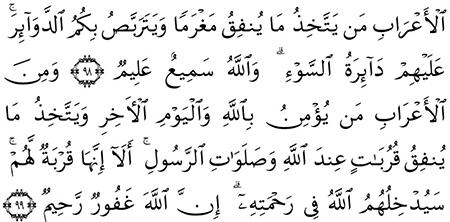 ٱلْأَعْرَابِ مَن يَتَّخِذُ مَا يُنفِقُ مَغْرَمًا وَيَتَرَبَّصُ بِكُمُ ٱلدَّوَآئِرَ ۚ
عَلَيْهِمْ دَآئِرَةُ ٱلسَّوْءِ ۗ وَٱللَّهُ سَمِيعٌ عَلِيمٌ ﴿٩٨﴾ وَمِنَ
ٱلْأَعْرَابِ مَن يُؤْمِنُ بِٱللَّهِ وَٱلْيَوْمِ ٱلْأَخِرِ وَيَتَّخِذُ مَا
يُنفِقُ قُرُبَٰتٍ عِندَ ٱللَّهِ وَصَلَوَٰتِ ٱلرَّسُولِ ۚ أَلَآ إِنَّهَا قُرْبَةٌ لَّهُمْ ۚ
سَيُدْخِلُهُمُ ٱللَّهُ فِى رَحْمَتِهِۦٓ ۗ إِنَّ ٱللَّهَ غَفُورٌ رَّحِيمٌ ﴿٩٩﴾